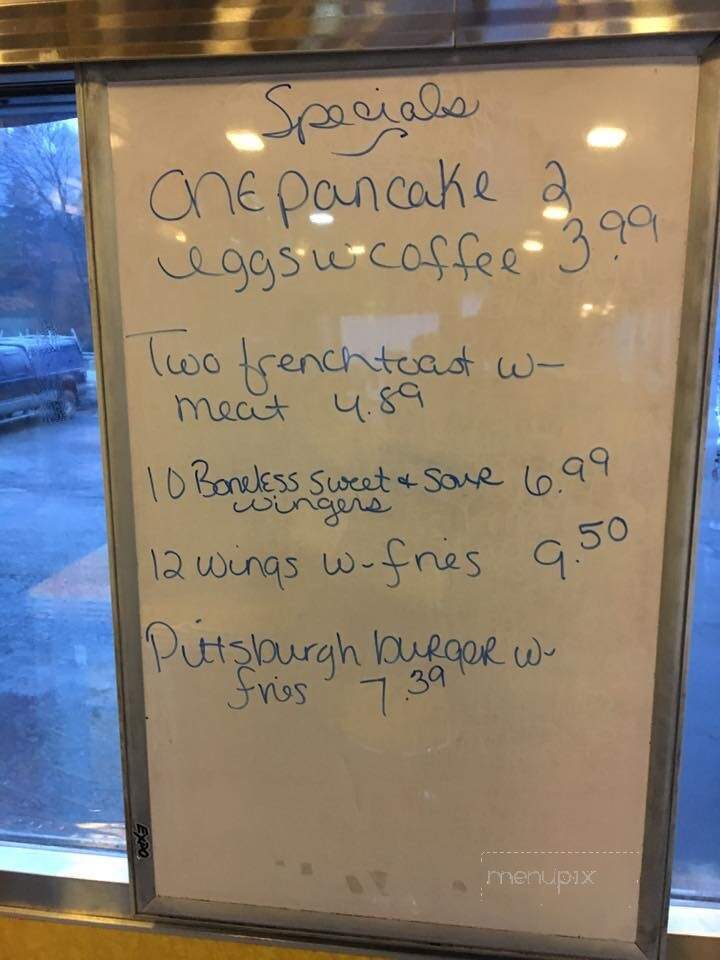 Specials
ONE pancake 2
eggs w coffee 3.99
Two french toast w-
meat 4.89
10 Boneless sweet + sour 6.99
wingers
12 wings w-fries 9.50
Pittsburgh burger w-
fries 7.39
EXPO
menupix